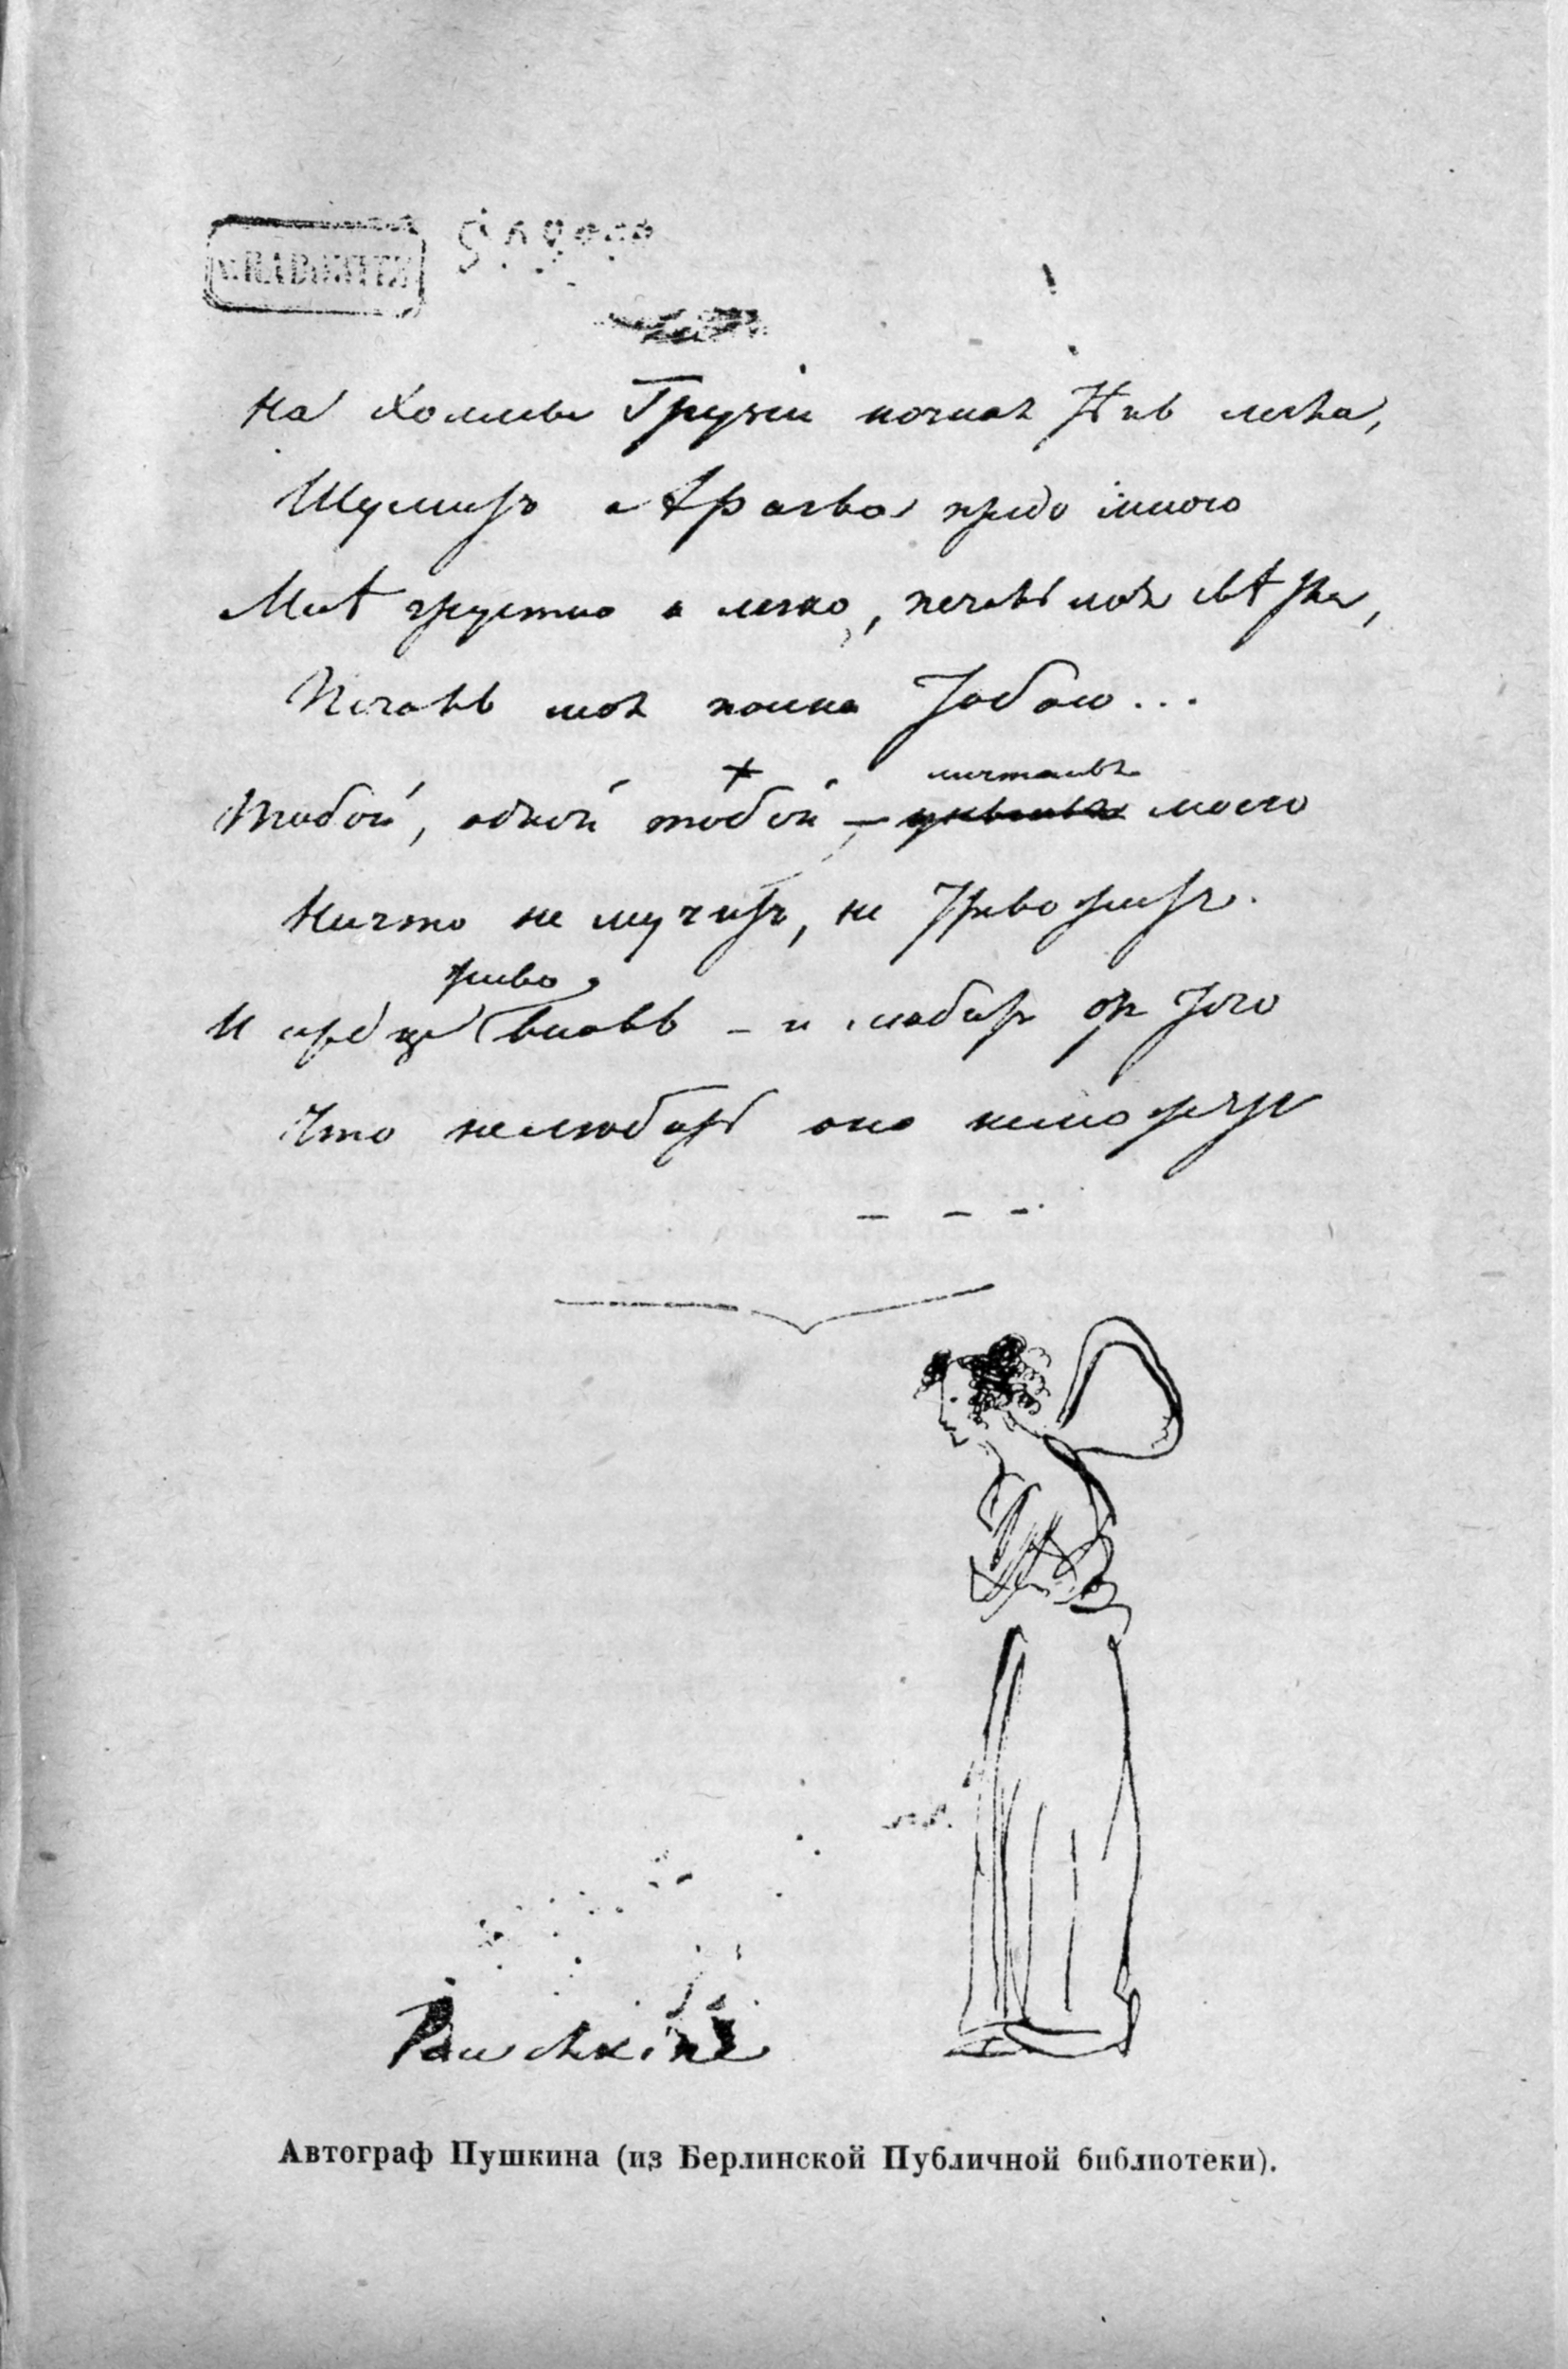 v. RADOWITZ
На холмы Грузіи ночная тѣнь легла,
Шумитъ Арагва предо мною
Мнѣ грустно и легко, печаль моя свѣтла,
Печаль моя полна тобою...
мечтанья
Тобой, одной тобой — унынья моего
Ничто не мучитъ, не тревожитъ.
живо
И сердце вновь - и любитъ отъ того
Что нелюбить оно неможетъ
Pouchkine
Автограф Пушкина (из Берлинской Публичной библиотеки).